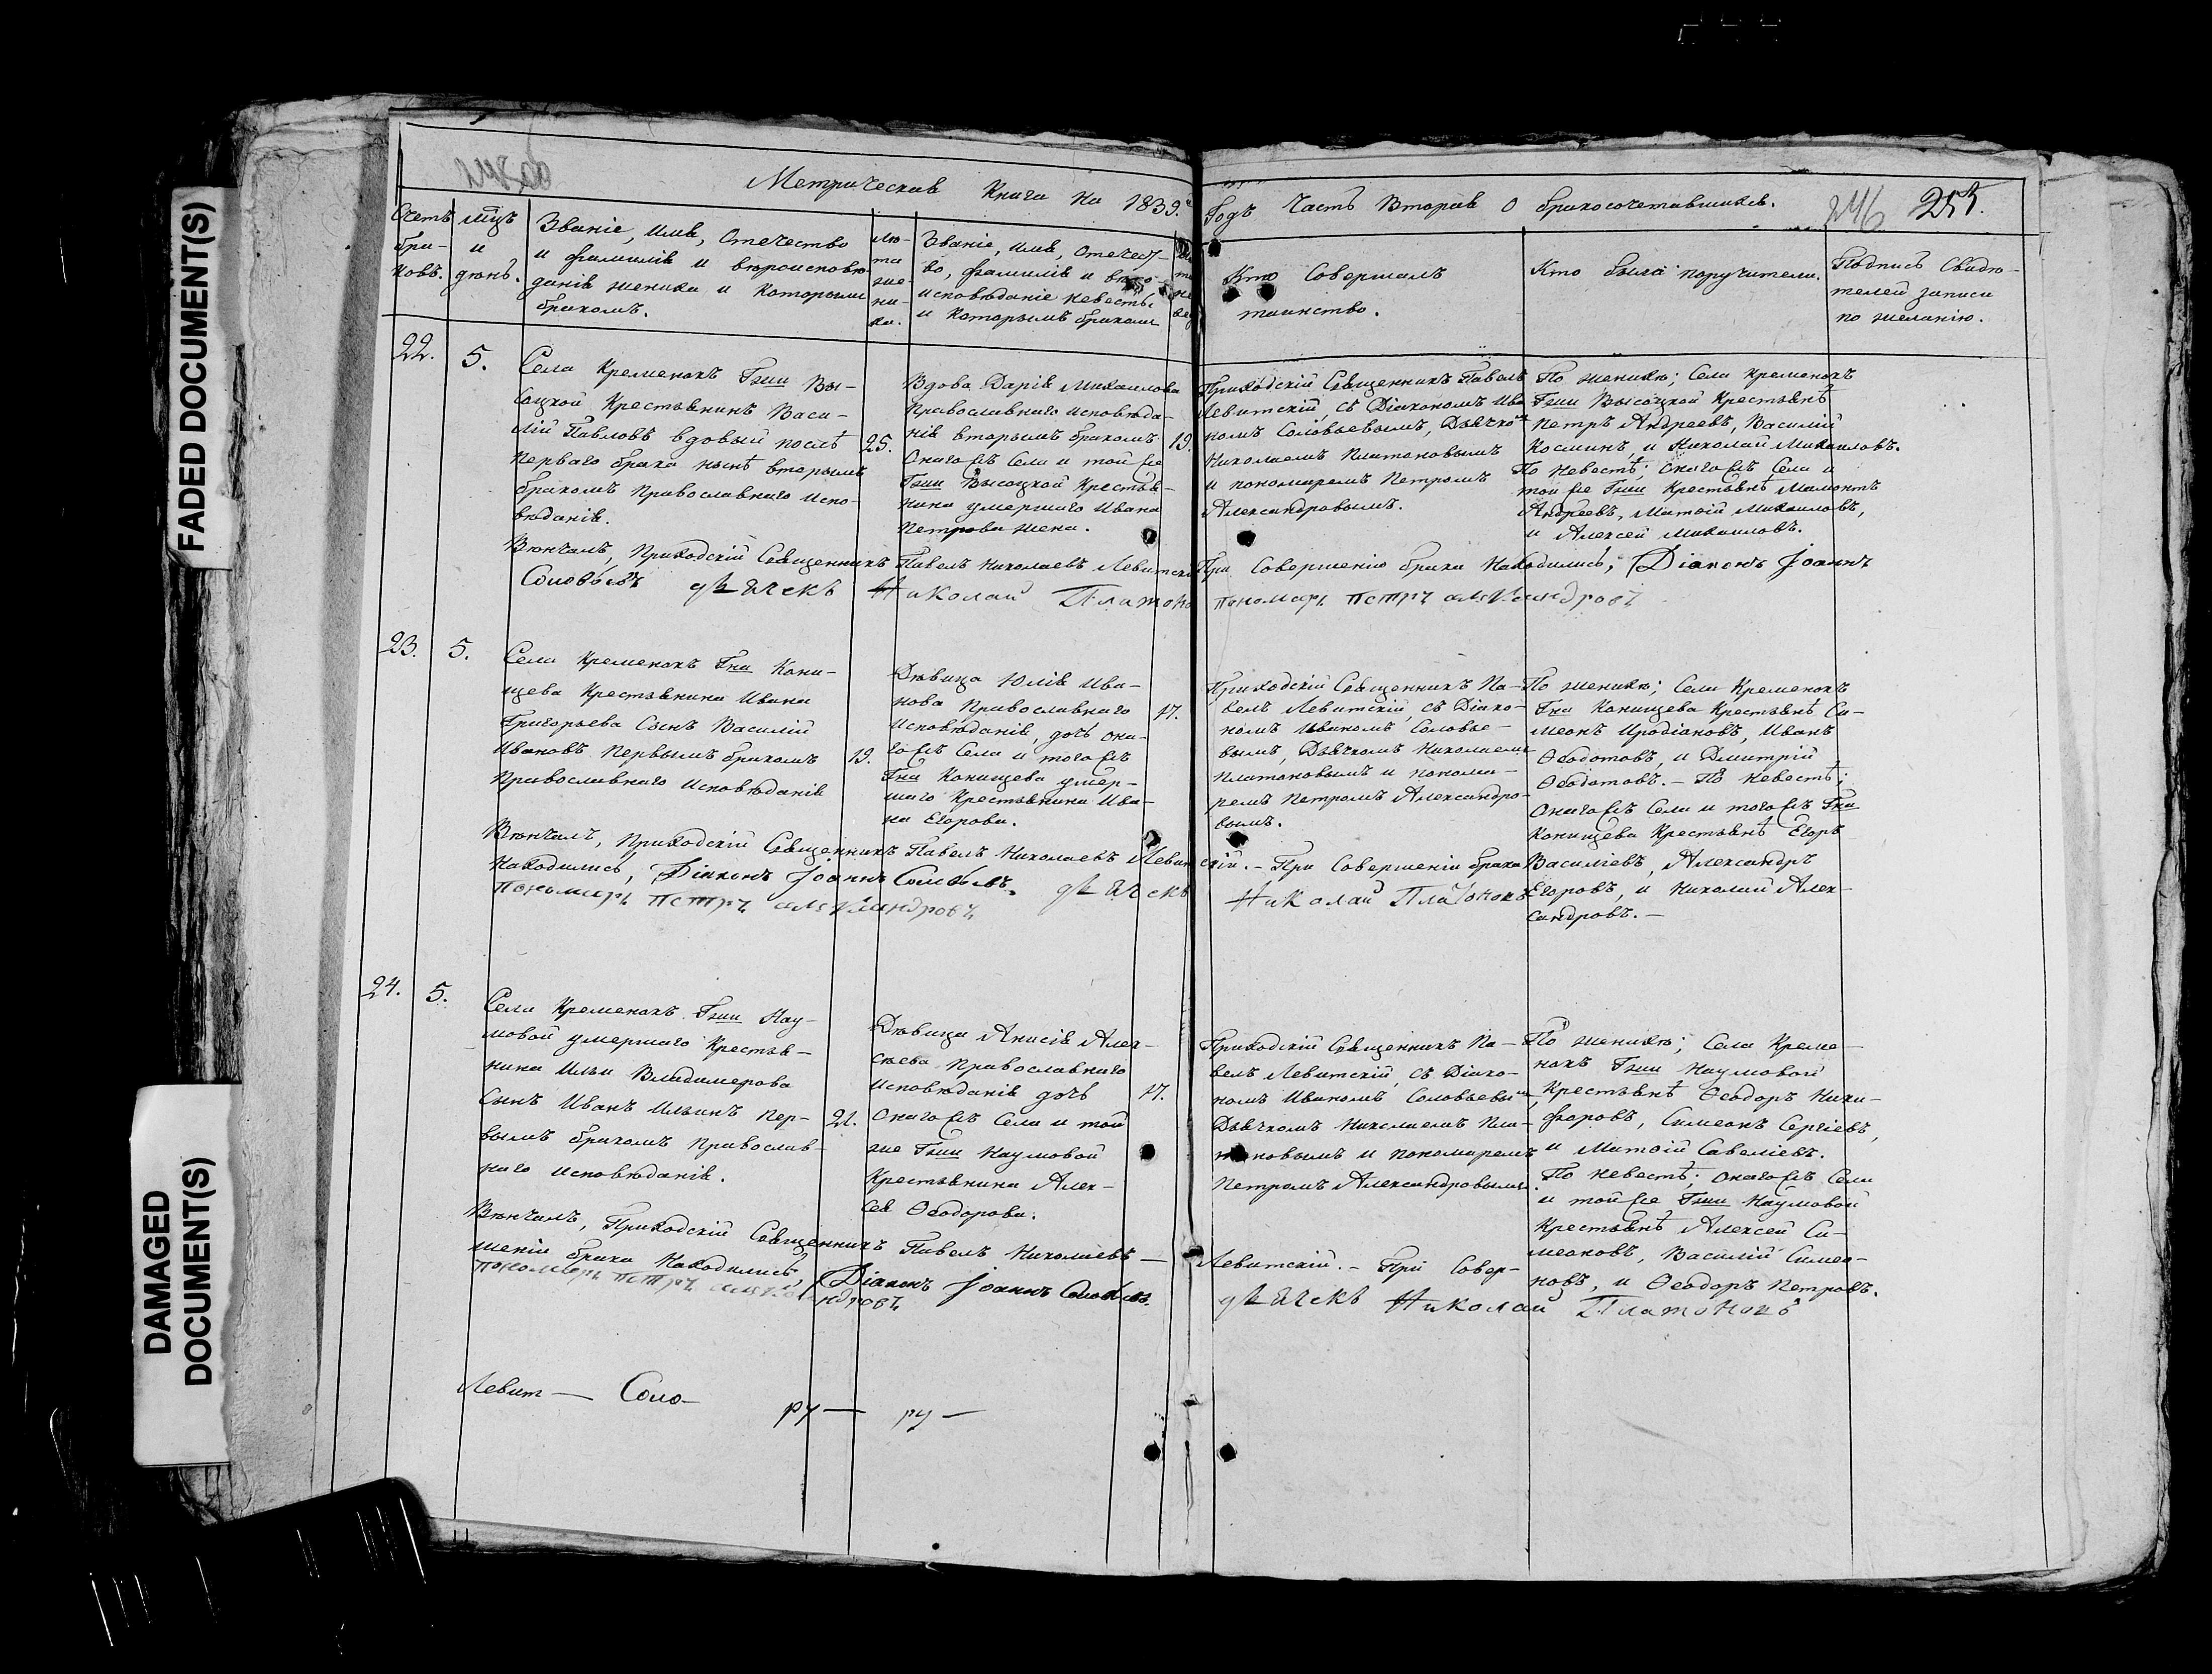 FADED DOCUMENT(S)
DAMAGED
DOCUMENT(S)
Метрическая Книга на 1839.й Годъ Часть Вторая О бракосочетавшихся.
246 257.
Счетъ
бра-
ковъ.
мцъ
и
день.
Званіе, Имя, Отечество
и фамилія и вѣроисповѣ-
даніе жениха и Которымъ
бракомъ.
Лѣ-
та
же-
ни-
ха.
Званіе, Имя, Отечест-
во, фамилія и вѣро-
исповѣданіе невесты
и Которымъ бракомъ
Кто Совершалъ
таинство.
Кто были поручители.
Подпись Свидѣ-
телей записи
по желанію.
22.
5.
Села Кременокъ Гжи Вы-
соцкой Крестьянинъ Васи-
лій Павловъ вдовый послѣ
перваго брака нынѣ вторымъ
бракомъ Православнаго испо-
вѣданія.
25.
Вдова Дарія Михаилова
Православнаго исповѣда-
нія вторымъ бракомъ
Онагожъ Села и той же
Гжи Высоцкой Крестья-
нина умершаго Ивана
Петрова жена.
19.
Приходскій Священникъ Павелъ
Левитскій, съ Діакономъ Ива
номъ Соловьевымъ, Дьячкомъ
Николаемъ Платоновымъ
и пономаремъ Петромъ
Александровымъ.
По женихѣ; Села Кременокъ
Гжи Высоцкой Крестьянѣ
Петръ Андреевъ, Василій
Косминъ, и Николай Михаиловъ.
По невестѣ; онагожъ Села и
той же Гжи Крестьянѣ Мамонтъ
Андреевъ, Матѳій Михаиловъ,
и Алексей Михаиловъ.
Вѣнчалъ, Приходскій Священникъ Павелъ Николаевъ Левитскій При Совершеніи брака Находились, Діаконъ Іоаннъ
Соловьевъ дьячекъ Николай Платоно пономарь петръ александровъ
23.
5.
Села Кременокъ Гна Кони-
щева Крестьянина Ивана
Григорьева Сынъ Василій
Ивановъ первымъ бракомъ
Православнаго Исповѣданія
19.
Дѣвица Юлія Ива-
нова Православнаго
Исповѣданія, дочь она-
гожъ Села и тогожъ
Гна Конищева умер-
шаго Крестьянина Ива-
на Егорова.
17.
Приходскій Священникъ Па-
велъ Левитскій, съ Діако-
номъ Иваномъ Соловье-
вымъ, Дьячкомъ Николаемъ
Платоновымъ и понома-
ремъ Петромъ Александро-
вымъ.
По женихѣ; Села Кременокъ
Гна Конищева Крестьянѣ Си-
меонъ Иродіановъ, Иванъ
Ѳеодотовъ, и Димитрій
Ѳеодотовъ. – По Невестѣ;
Онагожъ Села и тогожъ Гна
Конищева Крестьянѣ Егоръ
Василіевъ, Александръ
Егоровъ, и Николай Алек-
сандровъ. –
Вѣнчалъ, Приходскій Священникъ Павелъ Николаевъ Левитскій. – При Совершеніи брака
Находились, Діаконъ Іоаннъ Соловьевъ. дьячекъ Николай Платоновъ
Пономарь петръ александровъ
24.
5.
Села Кременокъ Гжи Нау-
мовой умершаго Крестья-
нина Ильи Владимерова
Сынъ Иванъ Ильинъ пер-
вымъ бракомъ Православ-
наго исповѣданія.
21.
Дѣвица Анисія Алек-
сѣева Православнаго
исповѣданія дочь
Онагожъ Села и той
же Гжи Наумовой
Крестьянина Алек-
сея Ѳеодорова.
17.
Приходскій Священникъ Па-
велъ Левитскій, съ Діако-
номъ Иваномъ Соловьевымъ,
Дьячкомъ Николаемъ Пла-
тоновымъ и пономаремъ
Петромъ Александровымъ.
По женихѣ; Села Креме-
нокъ Гжи Наумовой
Крестьянѣ Ѳеодоръ Ники-
форовъ, Симеонъ Сергіевъ,
и Матѳій Савеліевъ.
По невестѣ; онагожъ Села
и той же Гжи Наумовой
Крестьянѣ Алексей Си-
меоновъ, Василій Симео-
новъ, и Ѳеодоръ Петровъ.
Вѣнчалъ, Приходскій Священникъ Павелъ Николаевъ – Левитскій. – При Совер-
шеніи брака Находились, Діаконъ Іоаннъ Соловьевъ. дьячекъ Николай Платоновъ
пономарь петръ александровъ
Левит — Соло-
ру — ру —